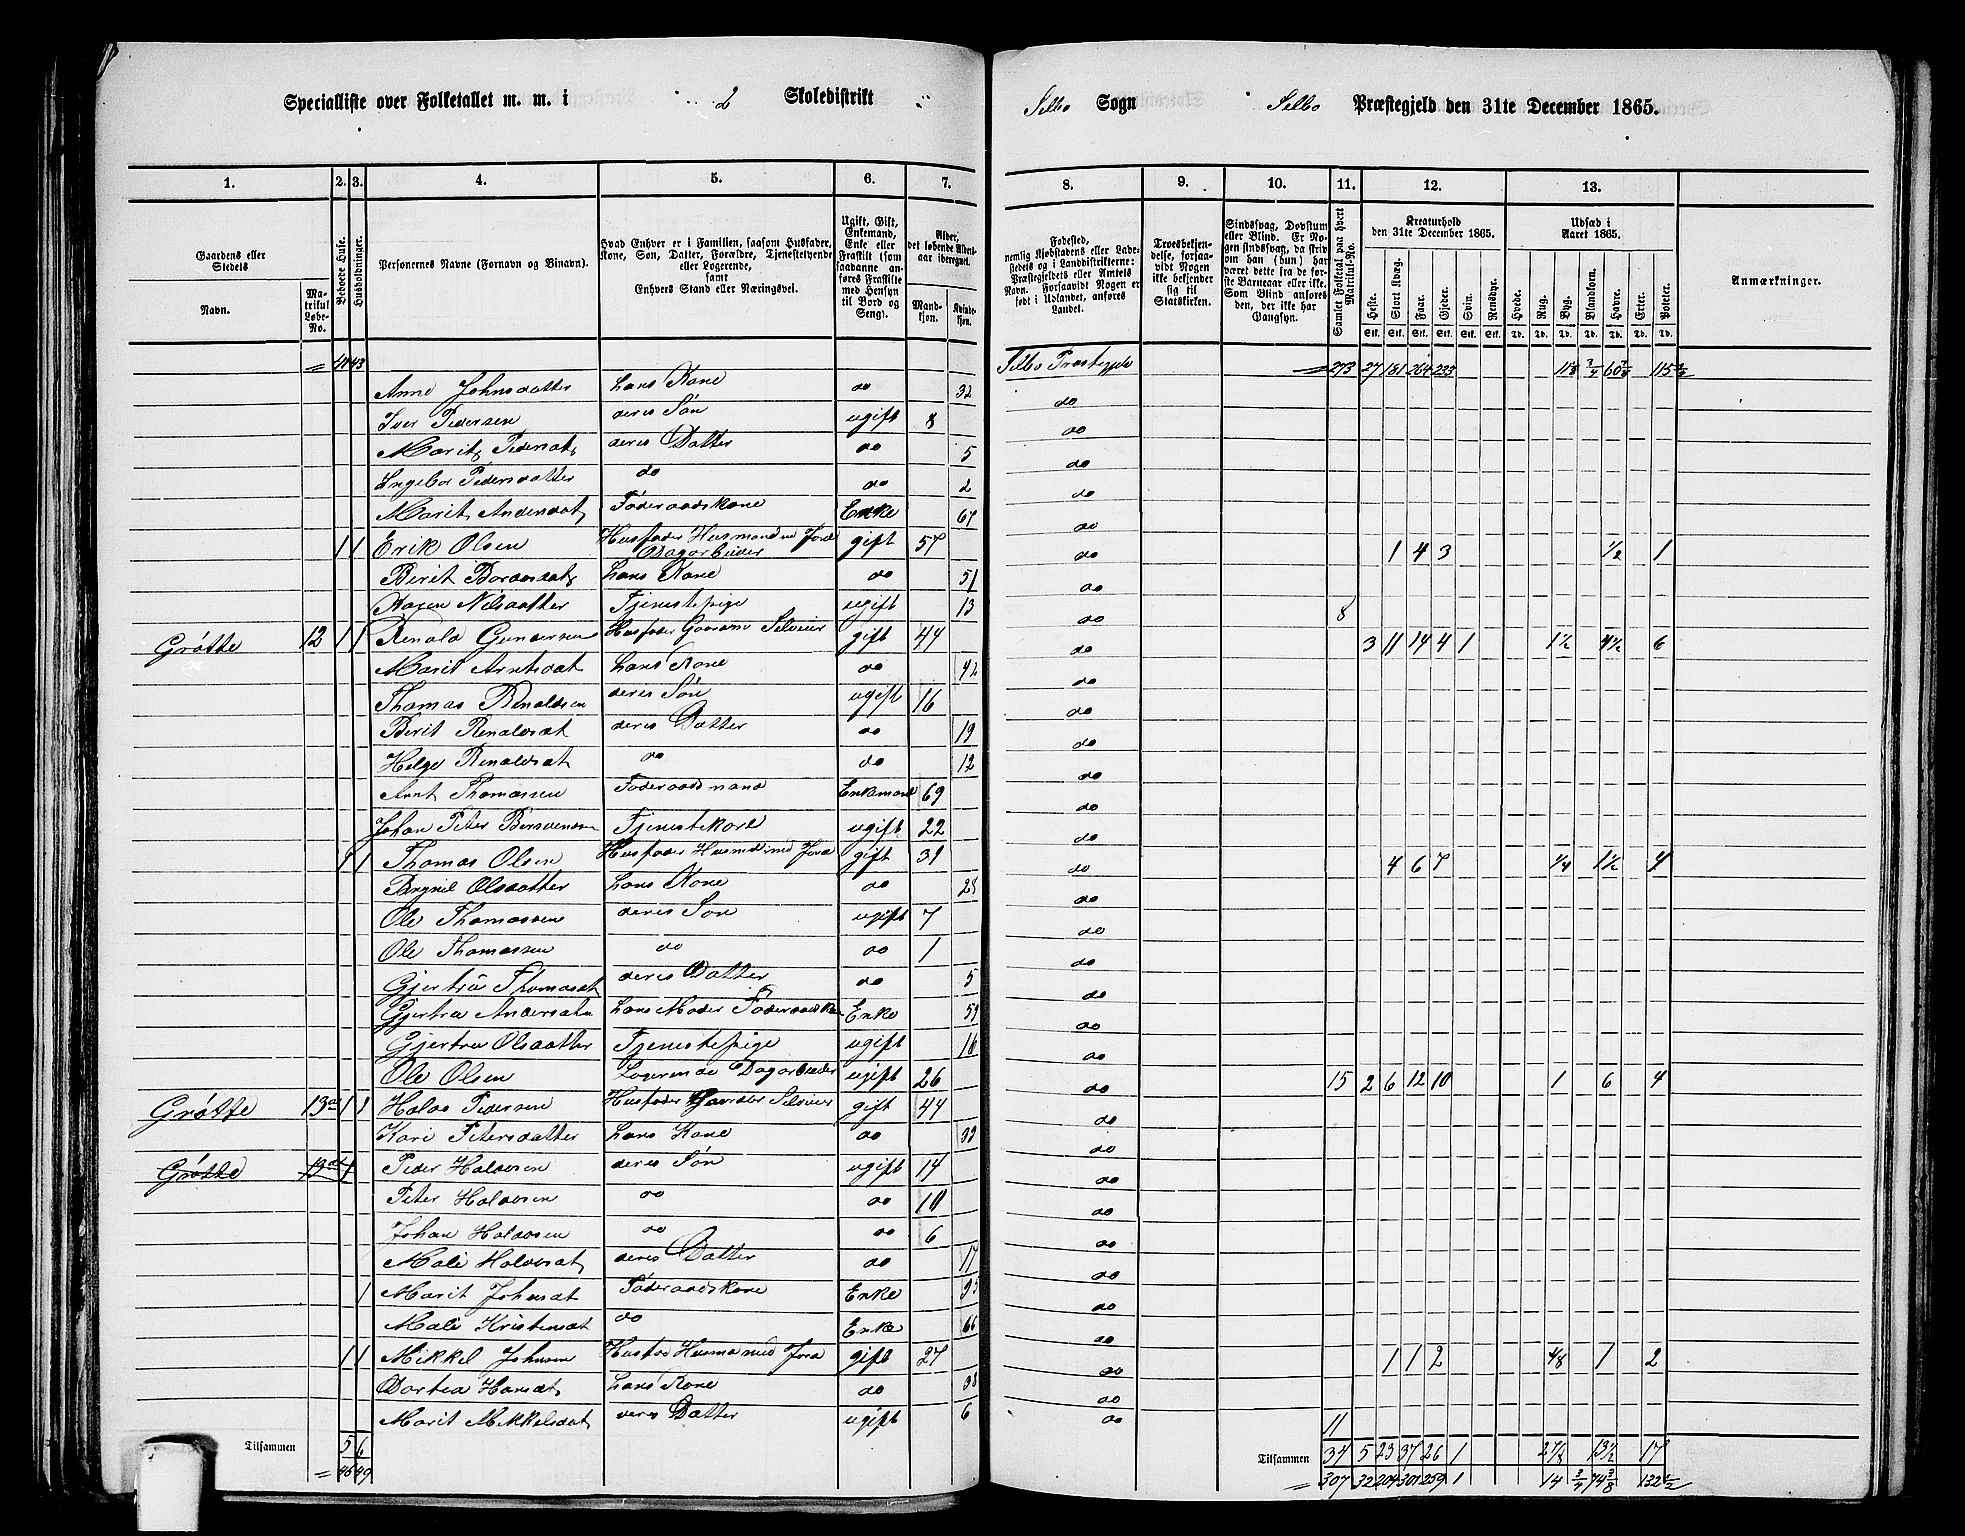 Specialliste over Folketallet m. m. i 2 Skoledistrikt
Selbo Sogn Selbo Præstegjeld den 31te December 1865.
1. 2. 3. 4. 5. 6. 7. 8. 9. 10. 11. 12. 13.
Gaardens eller Stedets
Navn.
Matrikul Løbe-No.
Beboede Huse.
Husholdninger.
Personernes Navne (Fornavn og Binavn).
Hvad Enhver er i Familien, saasom Husfader, Kone, Søn, Datter, Forældre, Tjenestetyende eller Logerende,
samt
Enhvers Stand eller Næringsvei.
Ugift, Gift, Enkemand, Enke eller Fraskilt (som saadanne anføres Fraskilte med Hensyn til Bord og Seng).
Alder, det løbende Alders-aar iberegnet.
Mandkjøn. Kvindekjøn.
Fødested, nemlig Kjøbstadens eller Ladestedets og i Landdistrikterne: Præstegjeldets eller Amtets Navn. Forsaavidt Nogen er født i Udlandet, anføres Landet.
Troesbekjendelse, forsaavidt Nogen ikke bekjender sig til Statskirken.
Sindssvag, Døvstum eller Blind. Er Nogen sindssvag, da skrives om han (hun) har været dette fra de første Barneaar eller ikke. Som Blind anføres den, der ikke har Gangsyn.
Samlet Folketal paa hvert Matrikul-No.
Kreaturhold den 31te December 1865.
Heste. Stort Kvæg. Faar. Gjeder. Svin. Rensdyr.
Stk. Stk. Stk. Stk. Stk. Stk.
Udsæd i Aaret 1865.
Hvede. Rug. Byg. Blandkorn. Havre. Erter. Poteter.
Td. Td. Td. Td. Td. Td. Td.
Anmærkninger.
41 43 Selbo Præstegjeld 273 27 181 264 233
Anne Johnsdatter hans Kone do 32 do
Iver Pedersen deres Søn ugift 8 do
Marit Pedersdat deres Datter do 5 do
Ingebor Pedersdatter do do 2 do
Marit Andersdat Føderaadskone Enke 67 do
1 1 Erik Olsen Husfader Husmand m Jord Dagarbeider gift 57 do 1 4 3 1/2 1
Berit Bordesdat hans Kone do 51 do
Karen Nilsdatter Tjenestepige ugift 13 do 8
Grøtte 12 1 1 Renald Gundersen Husfader Gaardm Selveier gift 44 do 3 11 14 4 1 1 1/2 4 1/2 6
Marit Arntsdat hans Kone do 42 do
Thomas Renaldsen deres Søn ugift 16 do
Berit Renaldsdat deres Datter do 19 do
Helge Renaldsdat do do 12 do
Arnt Thomassen Føderaadsmand Enkemand 69 do
Johan Peter Bersvendsen Tjenestekarl ugift 22 do
1 1 Thomas Olsen Husfader Husmd med Jord gift 31 do 4 6 7 1/4 1 1/2 4
Brynil Olsdatter hans Kone do 28 do
Ole Thomassen deres Søn ugift 7 do
Ole Thomassen do do 1 do
Gjertru Thomasdat deres Datter do 5 do
Gjertru Andersdat hans Moder Føderaadsk Enke 59 do
Gjertru Olsdatter Tjenestepige ugift 16 do
Ole Olsen Logerende Dagarbeider ugift 26 do 15 2 6 12 10 1 6 4
Grøtte 13 a 1 1 Halvo Pedersen Husfader Gaardbr Selveier gift 44 do
Kari Petersdatter hans Kone do 33 do
Grøtte 1 Peder Halvosen deres Søn ugift 14 do
Peter Halvosen do do 10 do
Johan Halvosen do do 6 do
Mali Halvosdat deres Datter do 17 do
1 Marit Johnsdat Føderaadskone Enke do
Mali Kristensdat do Enke 66 do
1 1 Mikkel Johnsen Husfad Husma med Jord gift 27 do 1 1 2 1 2
Dortea Hansdat hans Kone do 38 do
Marit Mikkelsdat deres Datter ugift 6 do 11
Tilsammen 5 6 Tilsammen 34 5 23 37 26 1 2 7/8 13 1/2 17
46 49 307 32 204 301 259 1 14 3/4 74 3/8 132 1/2